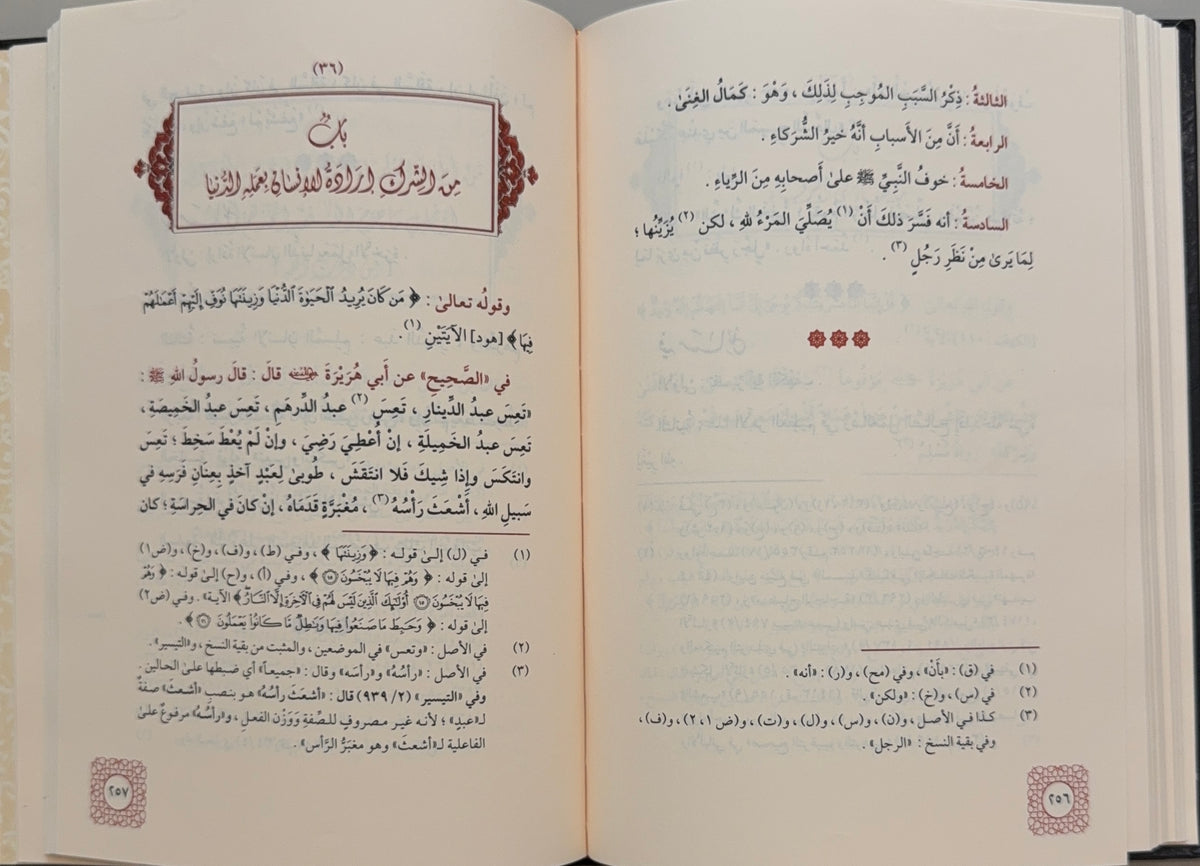 الثالثةُ : ذِكْرُ السَّبَبِ المُوجِبِ لِذَلِكَ ، وَهْوَ : كَمَالُ الغِنَىٰ .
الرابعةُ : أَنَّ مِنَ الأَسبابِ أَنَّهُ خَيرُ الشُّرَكاءِ .
الخامسةُ : خوفُ النَّبِيِّ ﷺ علىٰ أَصحابِهِ مِنَ الرِّياءِ .
السادسةُ : أنه فَسَّرَ ذلكَ أَنْ (١) يُصَلِّيَ المَرْءُ للهِ ، لكن (٢) يُزَيِّنُها ؛
لِمَا يَرىٰ مِنْ نَظَرِ رَجُلٍ (٣) .
(١) في (ق) : «بأَنْ» ، وفي (مح) ، و(ز) : «أنه» .
(٢) في (س) ، و(خ) : «ولكن» .
(٣) كذا في الأصل ، و(ن) ، و(س) ، و(ل) ، و(ت) ، و(ض ١ ، ٢) ، و(ف) ،
وفي بقية النسخ : «الرجل» .
٢٥٦
(٣٦)
بَابٌ
مِنَ الشِّركِ إِرَادَةُ الإِنسَانِ بِعَمَلِهِ الدُّنيَا
وقولُه تعالىٰ : ﴿ مَن كَانَ يُرِيدُ ٱلْحَيَوٰةَ ٱلدُّنْيَا وَزِينَتَهَا نُوَفِّ إِلَيْهِمْ أَعْمَٰلَهُمْ
فِيهَا﴾ [هود] الآيَتَيْنِ (١) .
في «الصَّحِيحِ» عن أَبي هُرَيْرَةَ رضي الله عنه قالَ : قالَ رسولُ اللهِ ﷺ :
«تَعِسَ عبدُ الدِّينارِ ، تَعِسَ (٢) عبدُ الدِّرهَمِ ، تَعِسَ عبدُ الخَمِيصَةِ ،
تَعِسَ عبدُ الخَمِيلَةِ ، إنْ أُعْطِيَ رَضِيَ ، وإنْ لَمْ يُعْطَ سَخِطَ ؛ تَعِسَ
وانتَكَسَ وإذا شِيكَ فلا انتَقَشَ ، طُوبىٰ لِعَبْدٍ آخذٍ بِعِنَانِ فَرَسِهِ في
سَبيلِ اللهِ ، أَشْعَثَ رَأْسُهُ (٣) ، مُغْبَرَّةٍ قَدَمَاهُ ، إنْ كانَ في الحِراسَةِ ؛ كان
(١) في (ل) إلىٰ قوله : ﴿ وَزِينَتَهَا ﴾ ، وفي (ط) ، و(ف) ، و(خ) ، و(ض١)
إلىٰ قوله : ﴿ وَهُمْ فِيهَا لَا يُبْخَسُونَ ١٥ ﴾ ، وفي (أ) ، و(ح) إلىٰ قوله : ﴿ وَهُمْ
فِيهَا لَا يُبْخَسُونَ ١٥ أُوْلَٰئِكَ ٱلَّذِينَ لَيْسَ لَهُمْ فِي ٱلْءَاخِرَةِ إِلَّا ٱلنَّارُ ﴾ الآية . وفي (ض٢)
إلىٰ قوله : ﴿ وَحَبِطَ مَا صَنَعُواْ فِيهَا وَبَٰطِلٌ مَّا كَانُواْ يَعْمَلُونَ ١٦ ﴾ .
(٢) في الأصل : «وتعس» في الموضعين ، والمثبت من بقية النسخ ، و«التيسير» .
(٣) في الأصل : «رأسُهُ» و«رأسَه» وقال : «جميعاً» أي ضبطها علىٰ الحالين .
وفي «التيسير» (٢/ ٩٣٩) قال : «أشعثَ رأسُهُ» هو بنصبِ «أشعثَ» صفةٌ
لـ«عبدٍ» ؛ لأنه غير مصروفٍ للصِّفةِ وَوَزْن الفعلِ ، و«رأسُهُ» مرفوعٌ علىٰ
الفاعلية لـ«أشعثَ» وهو مغبَرُّ الرَّأس» .
٢٥٧